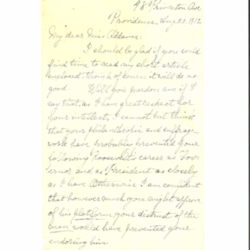 Princeton Ave
Providence, Aug. 22. 1912
My dear Miss Addams:
I should be glad if you could
find time to read my short article
enclosed, though of course it will do no
good. Will you pardon me if I
say that, as I have great respect for
your intellect, I cannot but think
that your philanthropic and suffrage
work have probably prevented your
following Roosevelt's career as Gov-
ernor and as President as closely
as I have. Otherwise I am confident
that however much you might approve
of his platform your distrust of the
man would have prevented your
endorsing him.